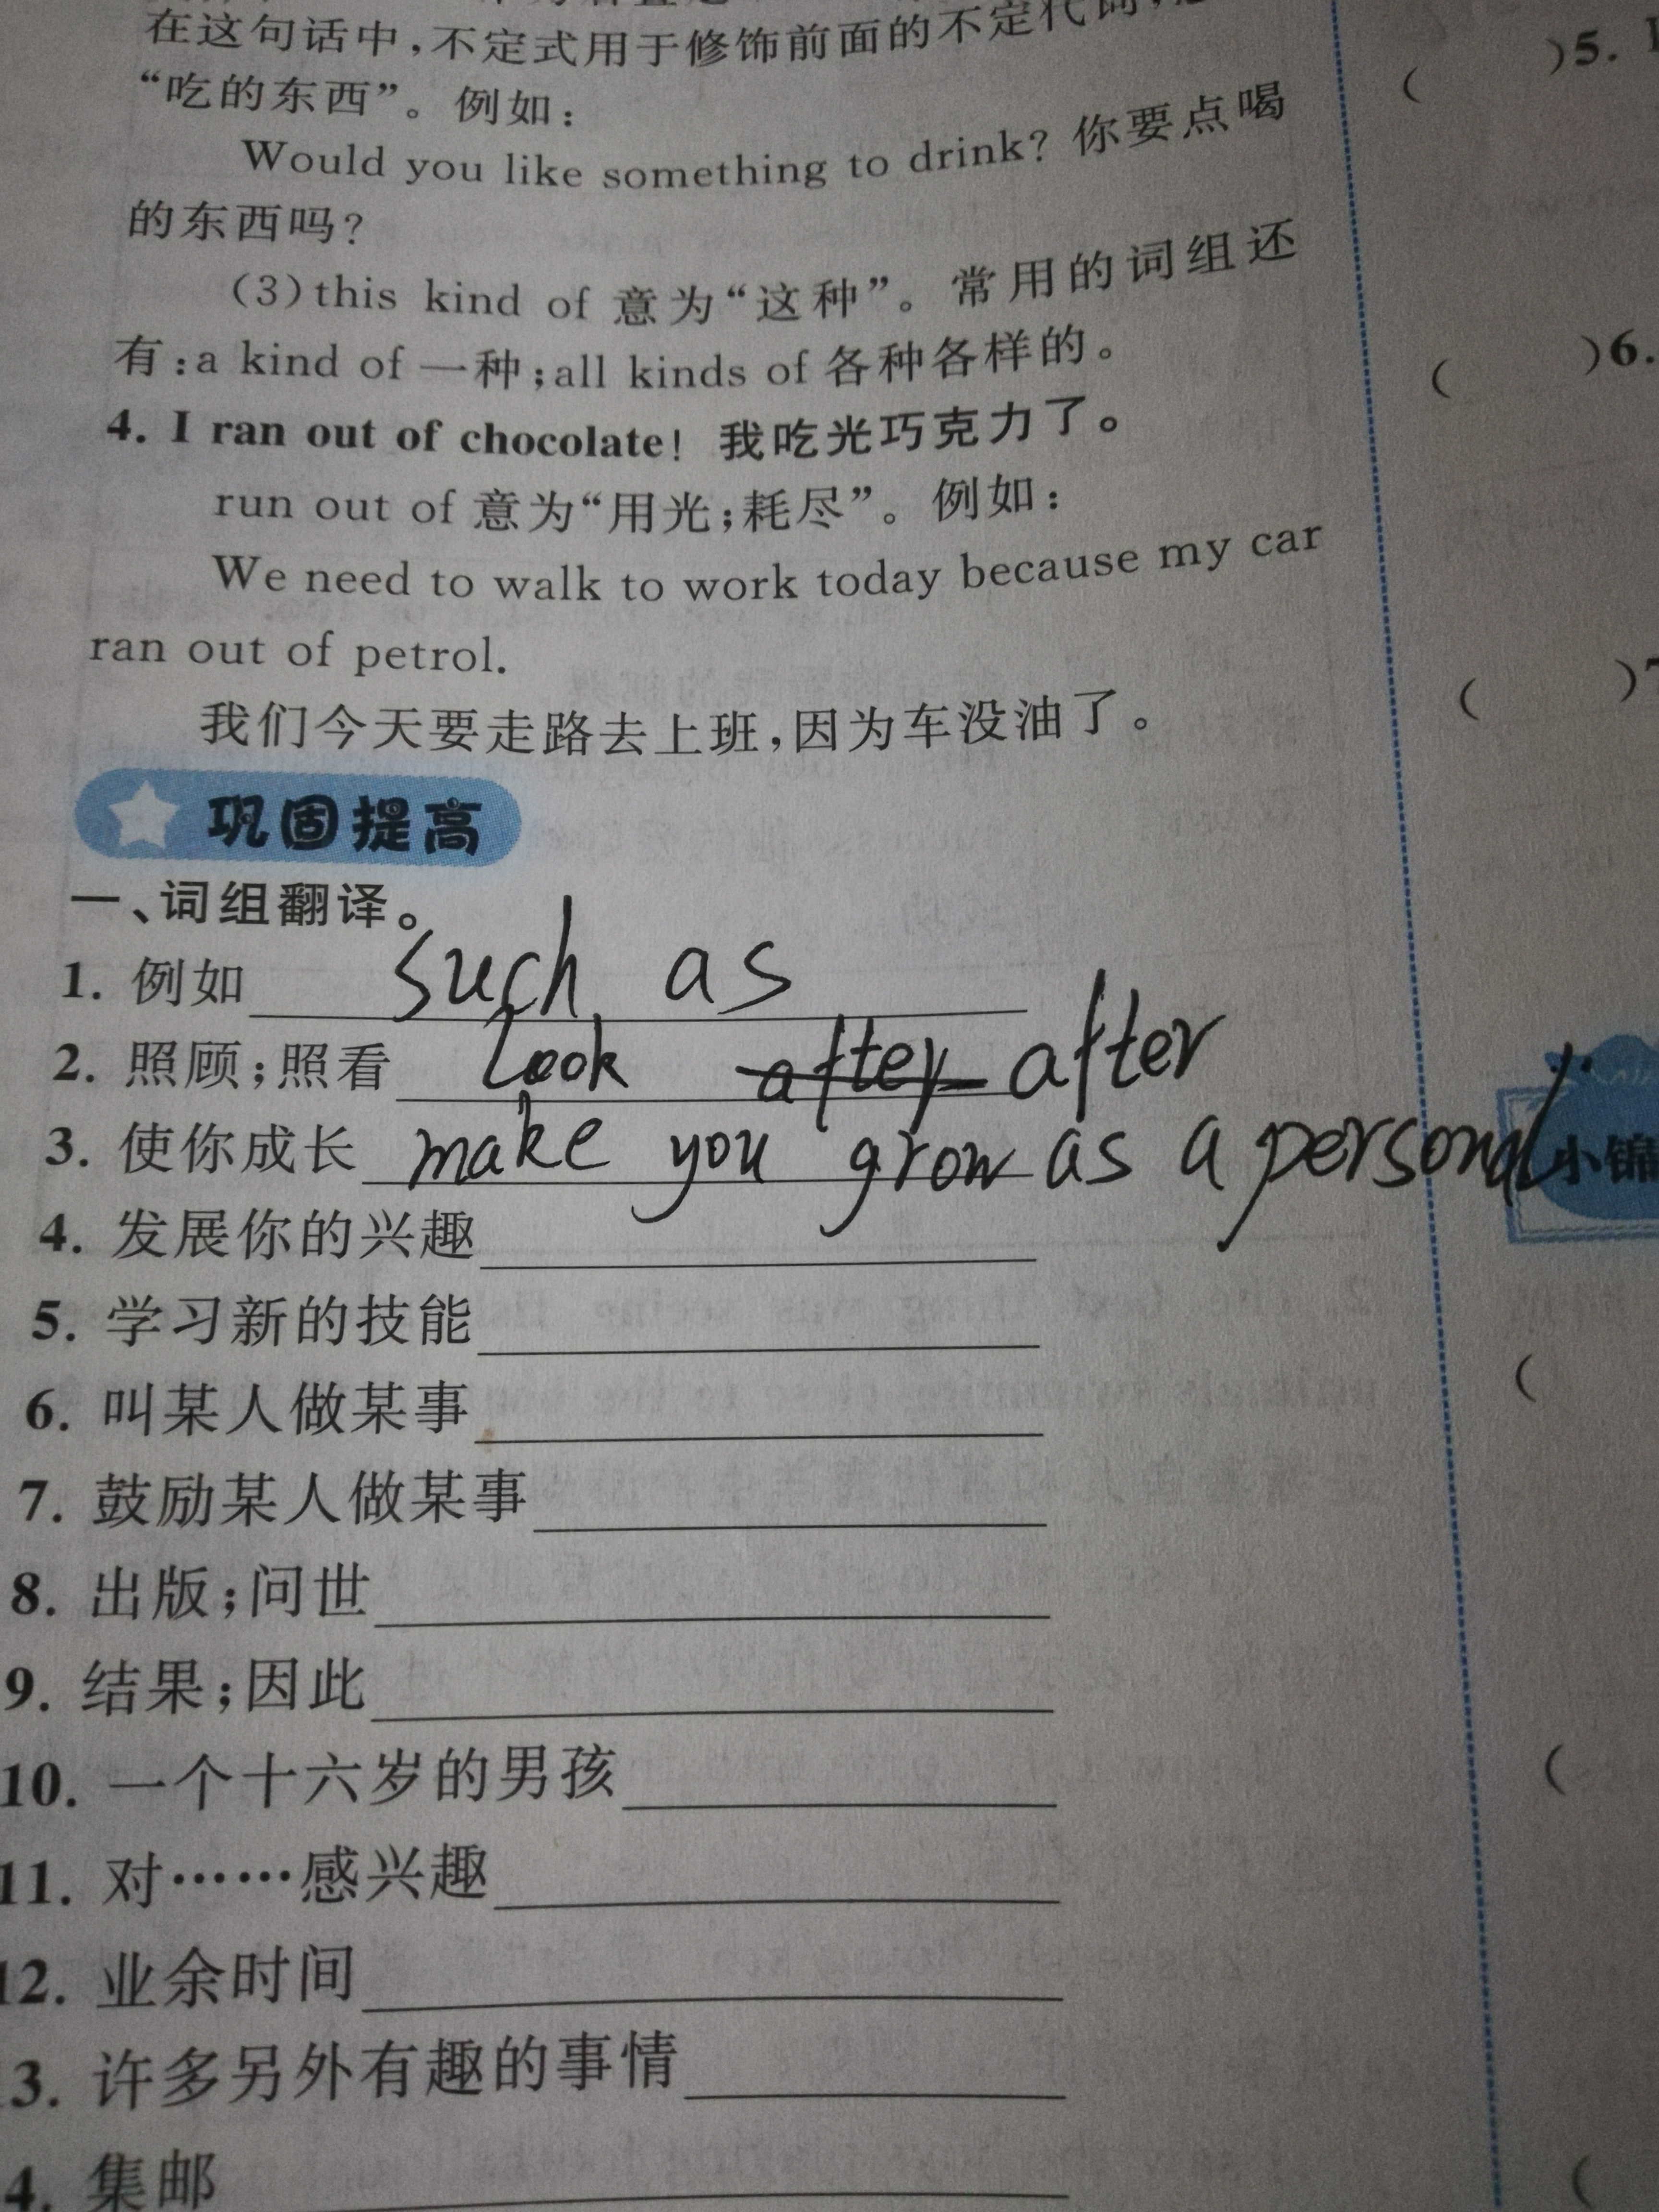 在这句话中,不定式用于修饰前面的不定代词,
“吃的东西”。例如:
Would you like something to drink? 你要点喝
的东西吗?
(3)this kind of 意为“这种”。常用的词组还
有:a kind of 一种;all kinds of 各种各样的。
4. I ran out of chocolate! 我吃光巧克力了。
run out of 意为“用光;耗尽”。例如:
We need to walk to work today because my car
ran out of petrol.
我们今天要走路去上班,因为车没油了。
巩固提高
一、词组翻译。
1. 例如 such as
2. 照顾;照看 look after after
3. 使你成长 make you grow as a personal
4. 发展你的兴趣
5. 学习新的技能
6. 叫某人做某事
7. 鼓励某人做某事
8. 出版;问世
9. 结果;因此
10. 一个十六岁的男孩
11. 对……感兴趣
12. 业余时间
3. 许多另外有趣的事情
4. 集邮
( )5.
( )6.
( )7
小锦
(
(
(